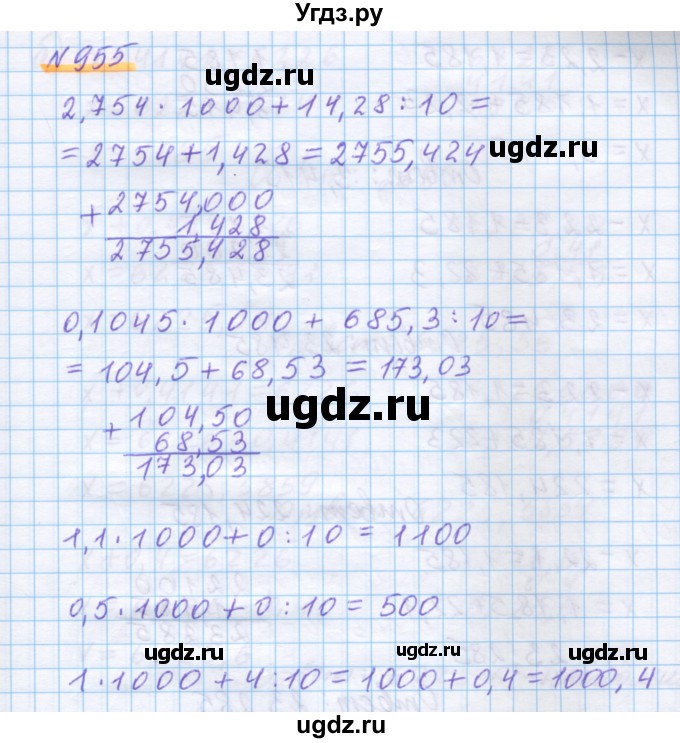 Угдз.ру
N 955
ugdz.ru
2,754 · 1000 + 14,28 : 10 =
= 2754 + 1,428 = 2755,424
ugdz.ru
+ 2754,000
1,428
2755,428
0,1045 · 1000 + 685,3 : 10 =
= 104,5 + 68,53 = 173,03
ugdz.ru
+ 104,50
68,53
173,03
1,1 · 1000 + 0 : 10 = 1100
0,5 · 1000 + 0 : 10 = 500
ugdz.ru
ugdz.ru
1 · 1000 + 4 : 10 = 1000 + 0,4 = 1000,4
ugdz.ru